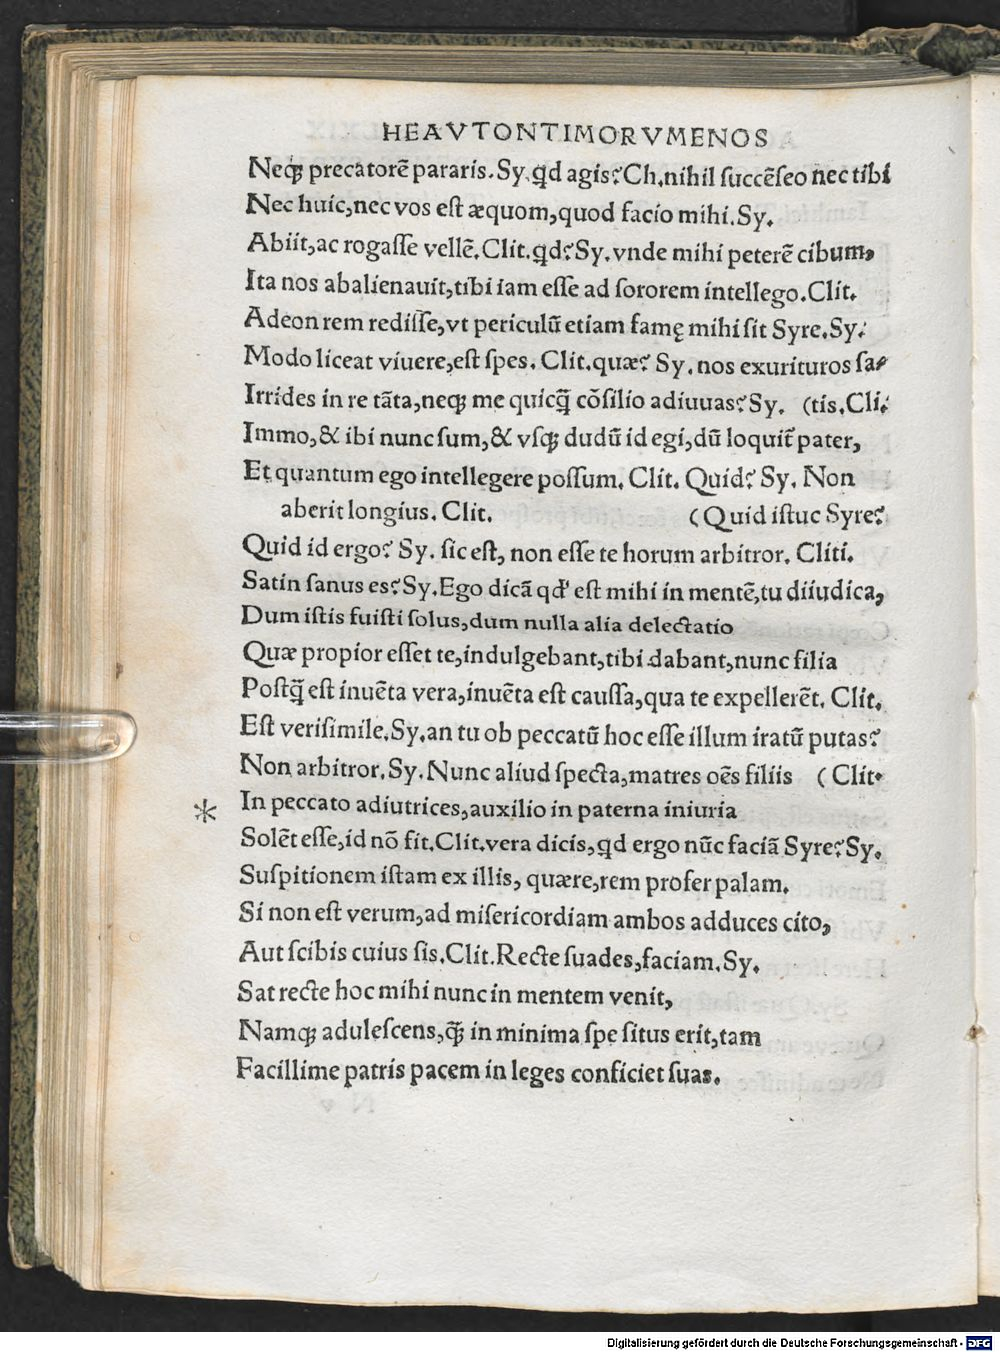 HEAVTONTIMORVMENOS
Neqꝫ precatorē pararis. Sy. qd agis? Ch. nihil succēseo nec tibi
Nec huic, nec vos est æquom, quod facio mihi. Sy.
Abiit, ac rogasse vellē. Clit. qd? Sy. vnde mihi peterē cibum,
Ita nos abalienauit, tibi iam esse ad sororem intellego. Clit.
Adeon rem redisse, vt periculū etiam famę mihi sit Syre. Sy.
Modo liceat viuere, est spes. Clit. quæ? Sy. nos exurituros sa-
Irrides in re tāta, neqꝫ me quicq̄ cōsilio adiuuas? Sy. (tis. Cli.
Immo, & ibi nunc sum, & vsqꝫ dudū id egi, dū loquit᷑ pater,
Et quantum ego intellegere possum. Clit. Quid? Sy. Non
aberit longius. Clit. (Quid istuc Syre?
Quid id ergo? Sy. sic est, non esse te horum arbitror. Cliti.
Satin sanus es? Sy. Ego dicā qd' est mihi in mentē, tu diiudica,
Dum istis fuisti solus, dum nulla alia delectatio
Quæ propior esset te, indulgebant, tibi dabant, nunc filia
Postq̄ est inuēta vera, inuēta est caussa, qua te expellerēt. Clit.
Est verisimile. Sy. an tu ob peccatū hoc esse illum iratū putas?
Non arbitror. Sy. Nunc aliud specta, matres oēs filiis (Clit.
* In peccato adiutrices, auxilio in paterna iniuria
Solēt esse, id nō fit. Clit. vera dicis, qd ergo nūc faciā Syre? Sy.
Suspitionem istam ex illis, quære, rem profer palam.
Si non est verum, ad misericordiam ambos adduces cito,
Aut scibis cuius sis. Clit. Recte suades, faciam. Sy.
Sat recte hoc mihi nunc in mentem venit,
Namqꝫ adulescens, q̄ꝫ in minima spe situs erit, tam
Facillime patris pacem in leges conficiet suas.
Digitalisierung gefördert durch die Deutsche Forschungsgemeinschaft - DFG